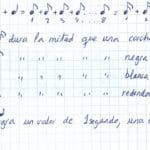 ♪ + ♪ = ♪ + ♪ + ♪ + ♪ ..... ♪ = ♪ + ♪
1 2 3 4 8 1 2
♪ dura la mitad que una corche
" " " " negra
" " " " blanca
" " " " redonda
gra un valor de 1 segundo, una